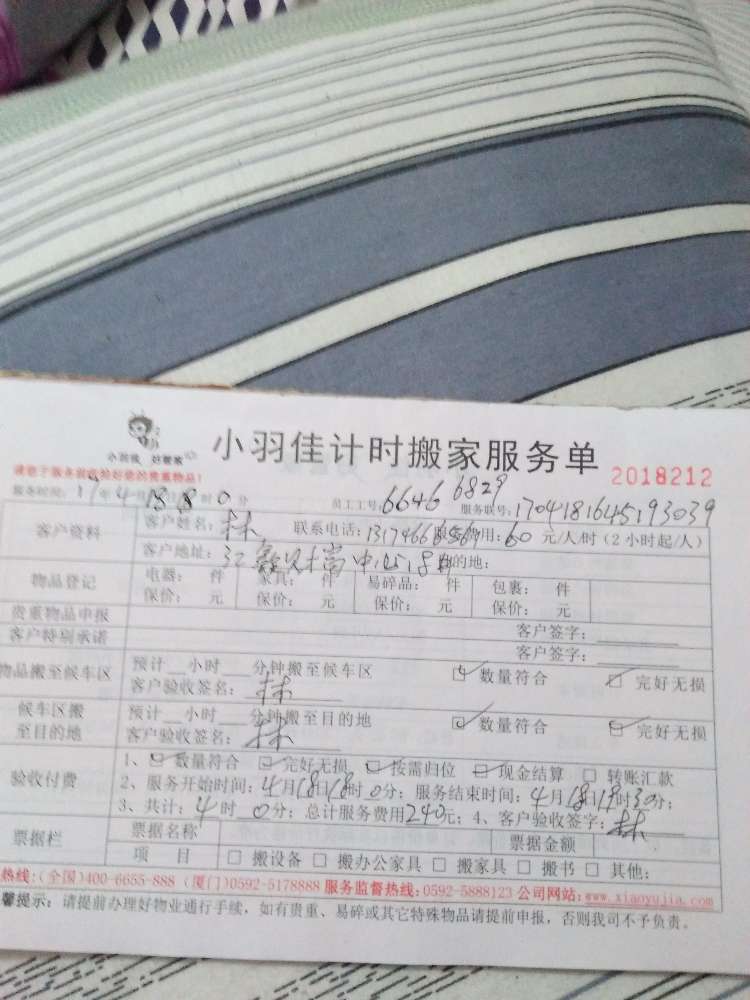 小羽佳 好管家
小羽佳计时搬家服务单 2018212
服务时间：17年4月18日18时0分 员工工号：6646 6829 服务联号：1704181645193039
客户资料 客户姓名：林 联系电话： 费用：60元/人/时（2小时起/人）
客户地址： 的地：
物品登记 电器： 件 家具： 件 易碎品： 件 包裹： 件
保价： 元 保价： 元 保价： 元 保价： 元
贵重物品申报 客户签字：
客户特别承诺 客户签字：
物品搬至候车区 预计__小时__分钟搬至候车区 ☑数量符合 ☑完好无损
客户验收签名：林
候车区搬至目的地 预计__小时__分钟搬至目的地 ☑数量符合 ☑完好无损
客户验收签名：林
验收付费 1、☑数量符合 ☑完好无损 ☑按需归位 ☑现金结算 □转账汇款
2、服务开始时间：4月18日18时0分；服务结束时间：4月18日19时30分；
3、共计：4时0分；总计服务费用240元；4、客户验收签字：林
票据栏 票据名称 票据金额
项 目 □搬设备 □搬办公家具 □搬家具 □搬书 □其他：
热线：（全国）400-6655-888（厦门）0592-5178888 服务监督热线：0592-5888123 公司网站：www.xiaoyujia.com
馨提示：请提前办理好物业通行手续，如有贵重、易碎或其它特殊物品请提前申报，否则我司不予负责。